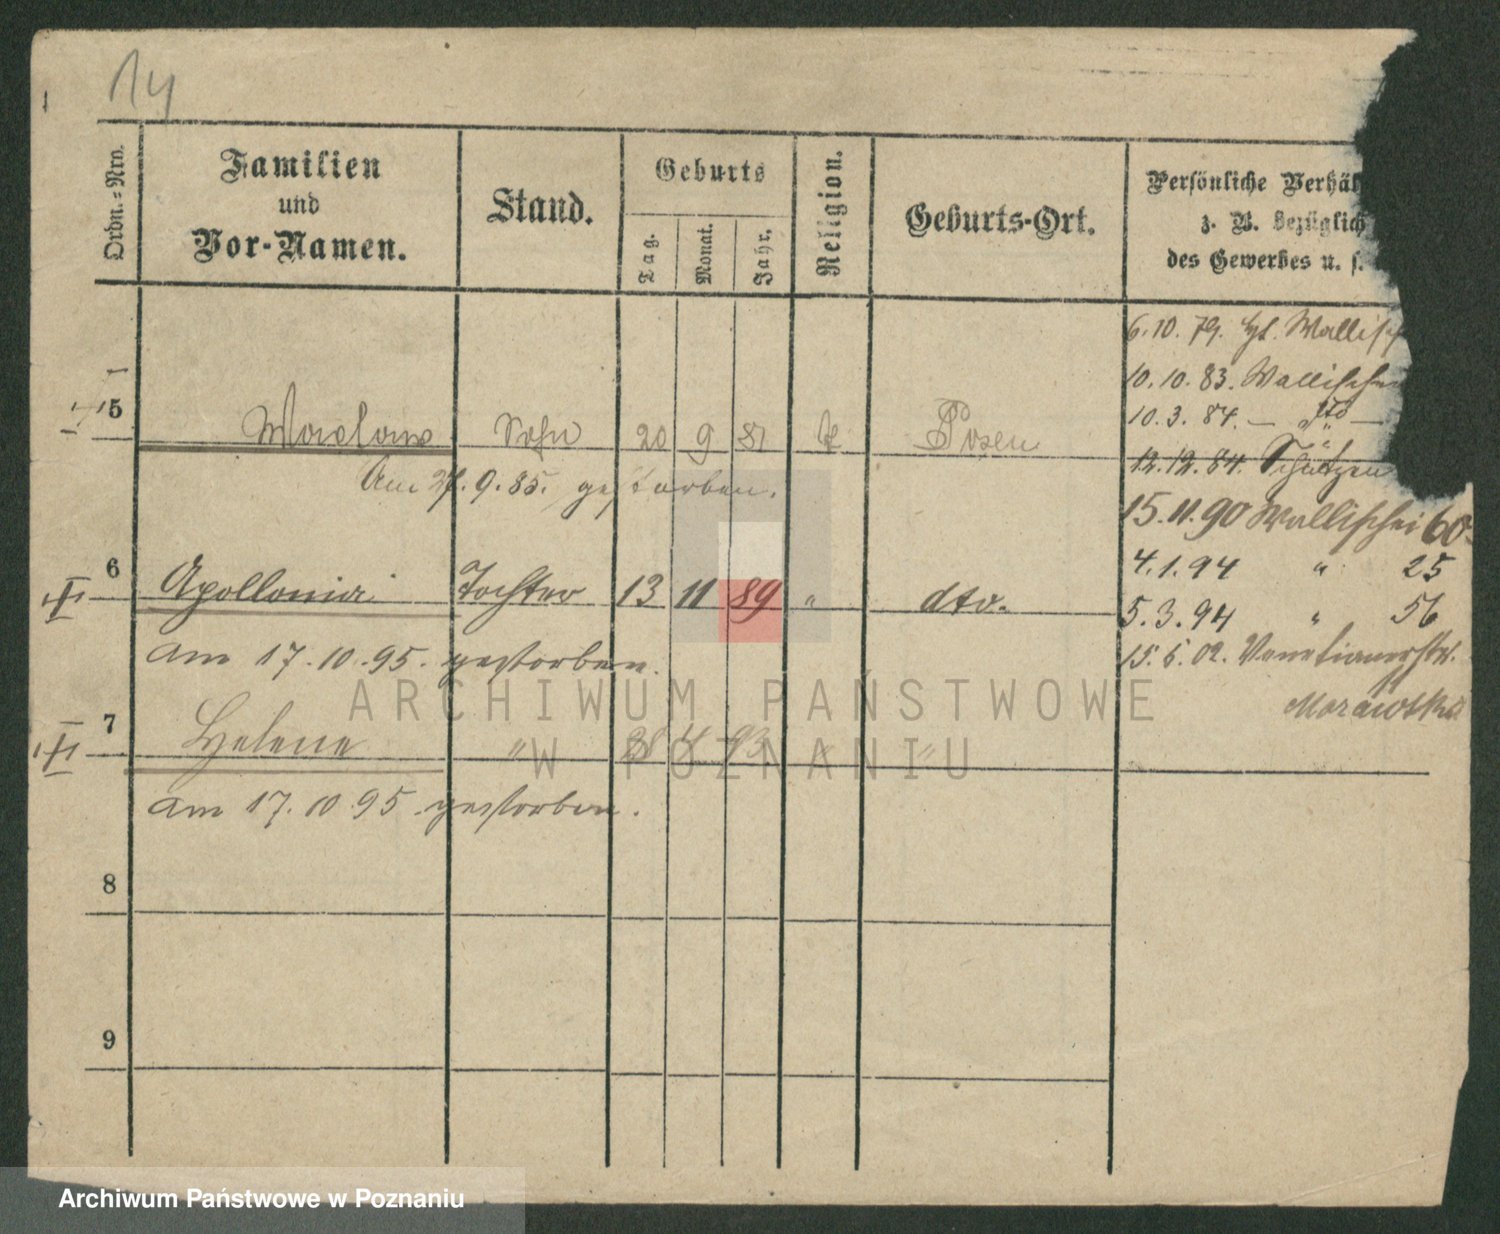 14
Ordn.-Nro.
Familien
und
Vor-Namen.
Stand.
Geburts
Tag.
Monat.
Jahr.
Religion.
Geburts-Ort.
Persönliche Verhäl
z. B. bezüglich
des Gewerbes u. s.
6.10.79. Wallisch
10.10.83. Wallischei
10.3.84. — dto —
12.12.84. Schützen
15.11.90 Wallischei 60
4.1.94 " 25
5.3.94 " 56
15.5.02. Venetianerstr.
Morawska
5 Waclaw Sohn 20 9 81 k Posen
Am 27.9.85. gestorben.
6 Apollonia Tochter 13 11 89 " dto.
am 17.10.95. gestorben.
7 Helene " 28 4 93 " "
am 17.10 95 gestorben.
8
9
ARCHIWUM PAŃSTWOWE
W POZNANIU
Archiwum Państwowe w Poznaniu